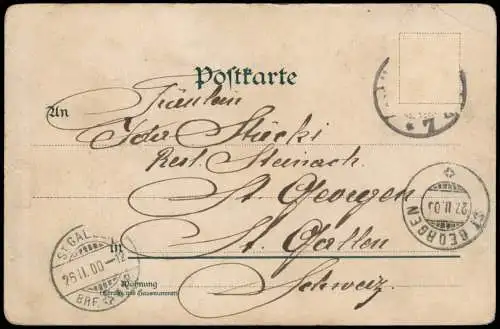 Postkarte
An
Fräulein
Ida Stücki
Rest. Steinach
St. Georgen
In St. Gallen
Schweiz
Wohnung
(Straße und Hausnummer)
ST. GALLEN
26.II.00.-12
ST. GEORGEN
27.II.00
7